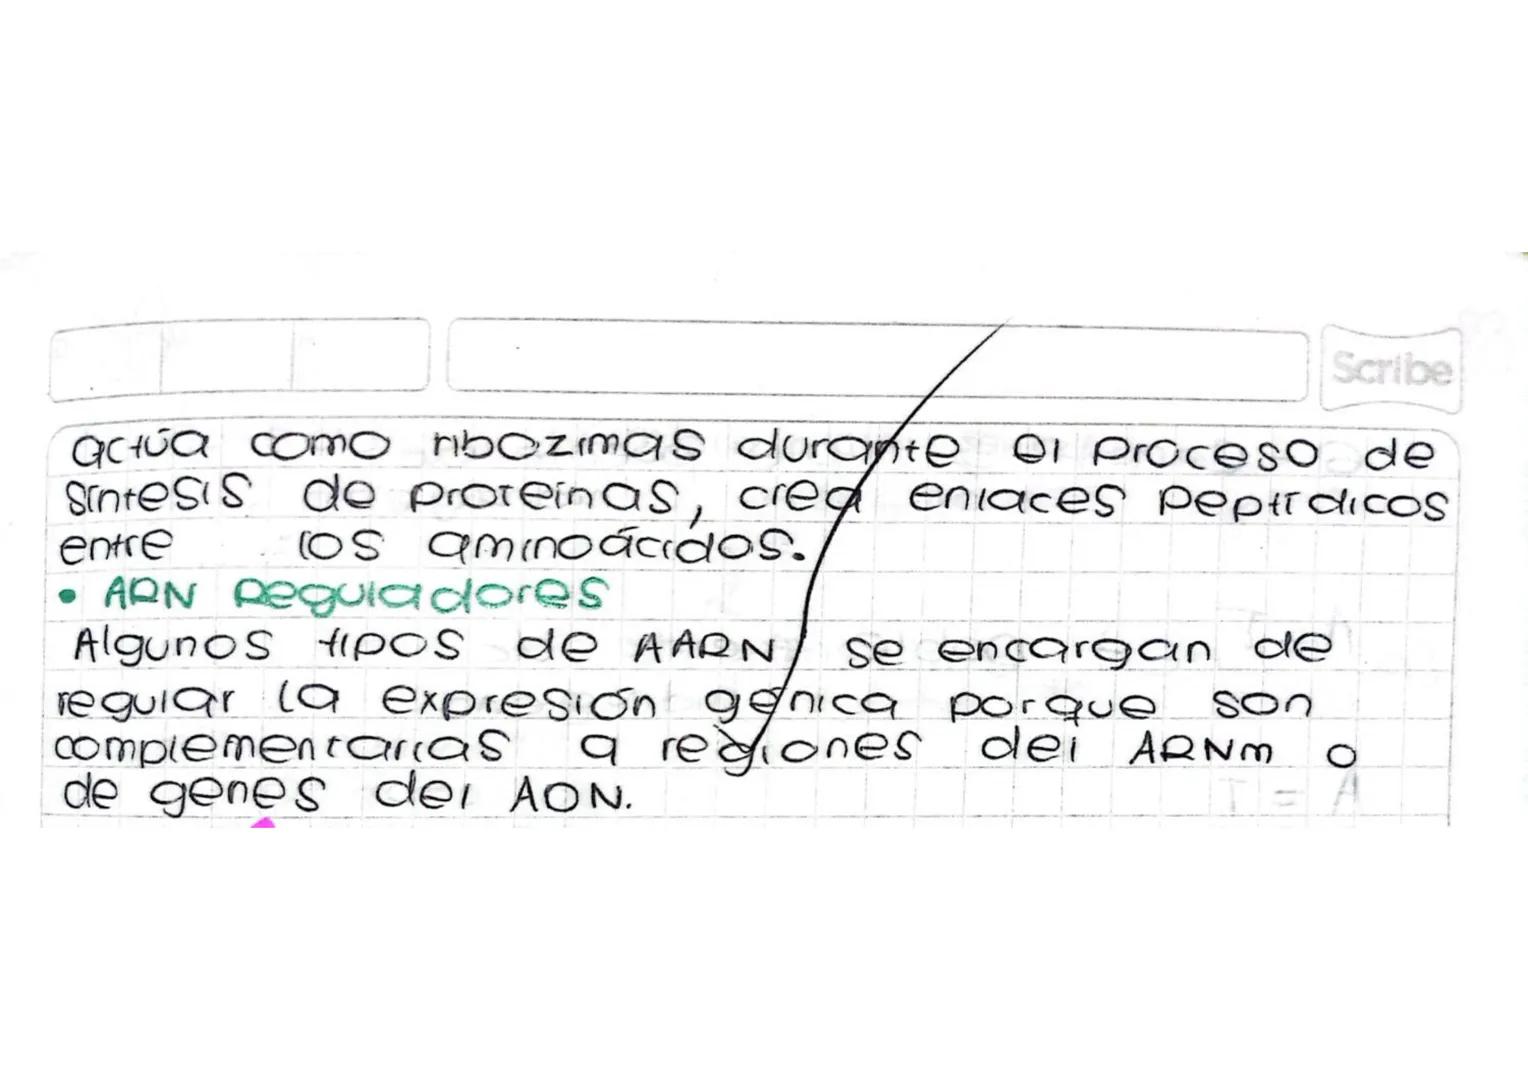 Scribe
actúa como ribozimas durante el proceso de
síntesis de proteínas, crea enlaces peptídicos
entre los aminoácidos.
• ARN Reguladores
Algunos tipos de AARN se encargan de
regular la expresión génica porque son
complementarias a regiones del ARNm o
de genes del ADN.
A = T